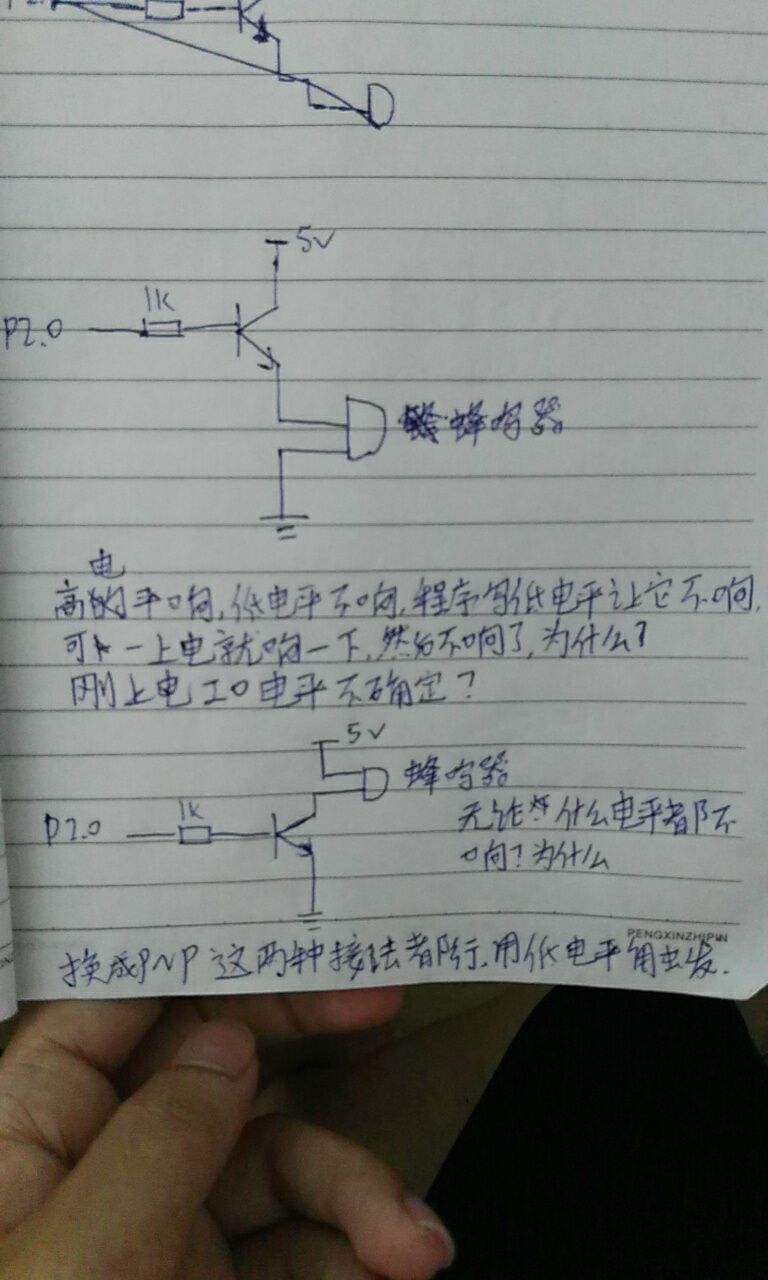 5V
1K
P2.0
蜂鸣器
电
高的平响,低电平不响,程序写低电平让它不响,
可一上电就响一下,然后不响了,为什么?
刚上电IO电平不确定?
5V
蜂鸣器
1K
P2.0
无论什么电平都不
响?为什么
PENGXINZHIPIN
换成PNP这两钟接法都行.用低电平触发.